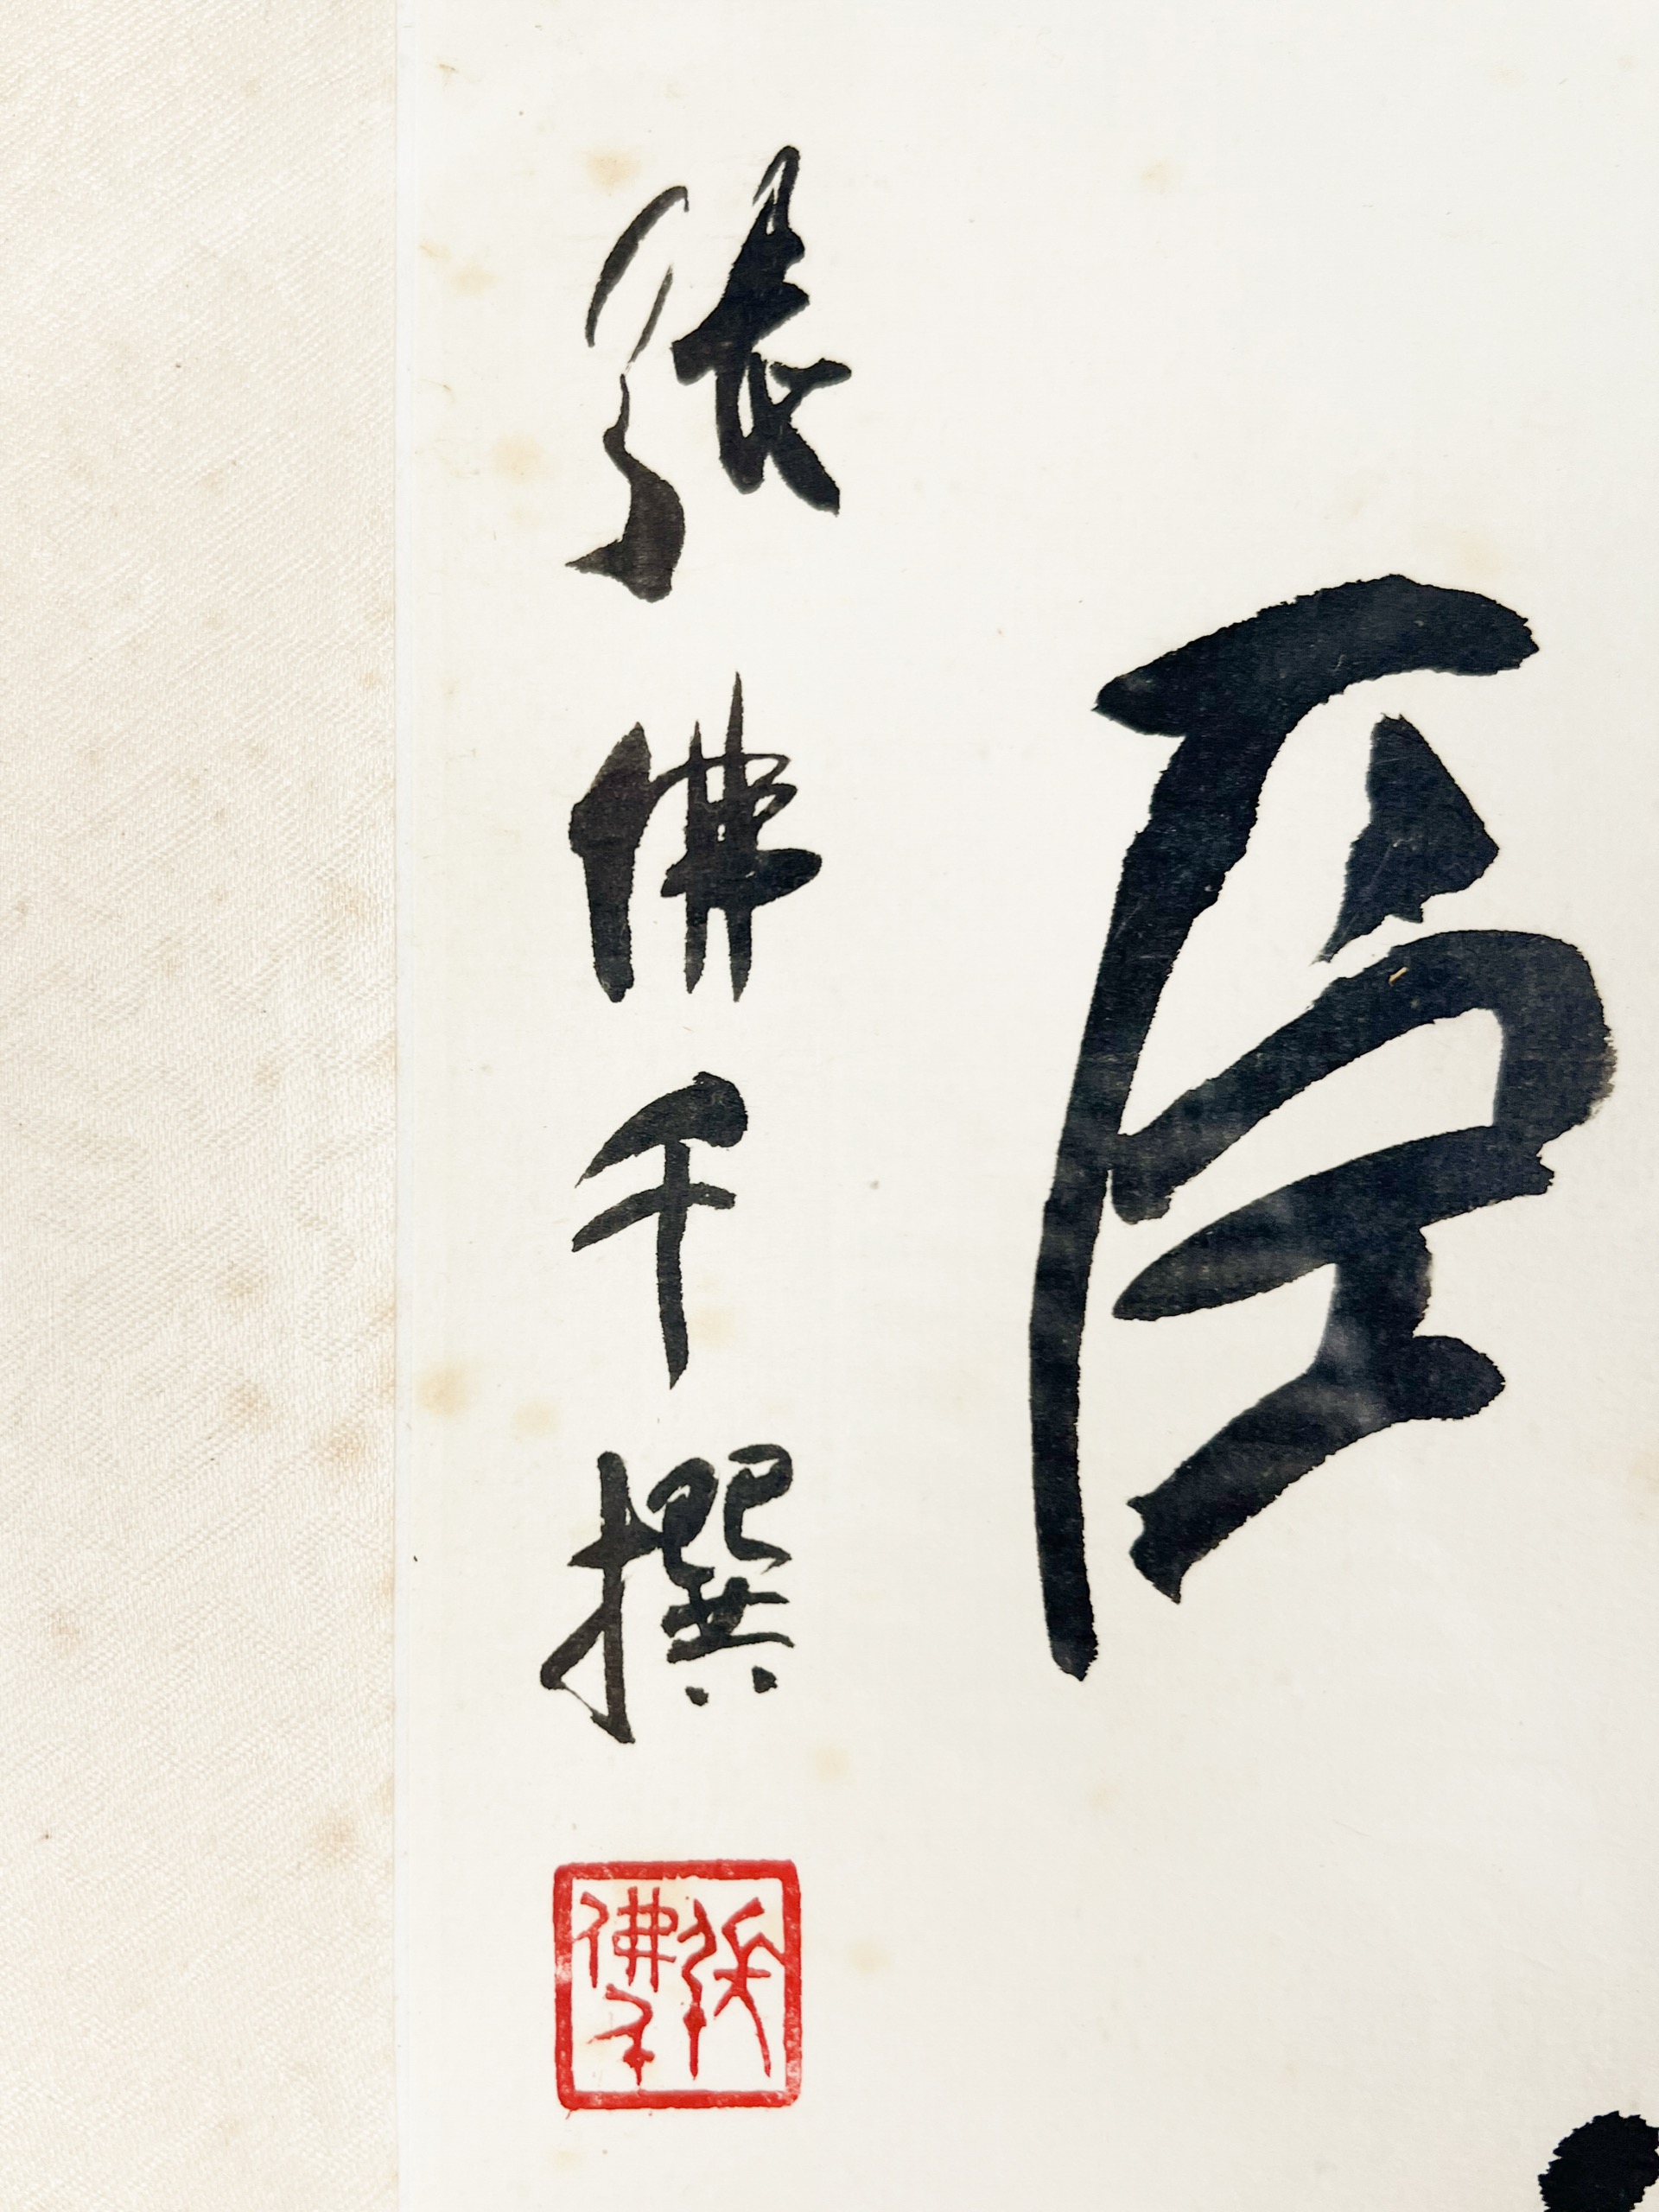 臣
張佛千撰
張佛千